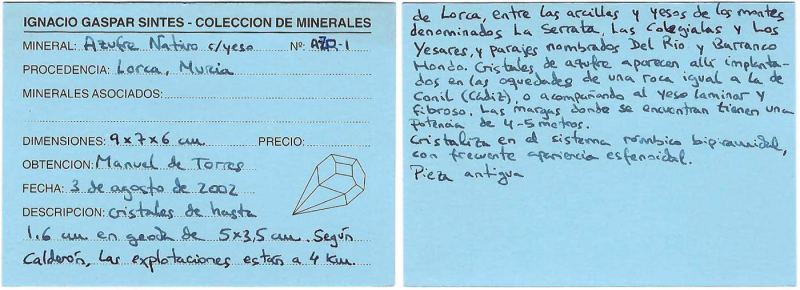 IGNACIO GASPAR SINTES - COLECCION DE MINERALES
MINERAL: Azufre Nativo c/yeso Nº: AZO-1
PROCEDENCIA: Lorca, Murcia
MINERALES ASOCIADOS:
DIMENSIONES: 9x7x6 cm PRECIO:
OBTENCION: Manuel de Torres
FECHA: 3 de agosto de 2002
DESCRIPCION: cristales de hasta
1.6 cm en geoda de 5x3,5 cm. Según
Calderón, las explotaciones están a 4 Km.
de Lorca, entre las arcillas y yesos de los montes
denominados La Serrata, Las Colegialas y Los
Yesares, y parajes nombrados Del Río y Barranco
Hondo. Cristales de azufre aparecen allí implanta-
dos en las oquedades de una roca igual a la de
Conil (Cádiz), o acompañando al yeso laminar y
fibroso. Las margas donde se encuentran tienen una
potencia de 4-5 metros.
Cristaliza en el sistema rómbico bipiramidal,
con frecuente apariencia esfenoidal.
Pieza antigua